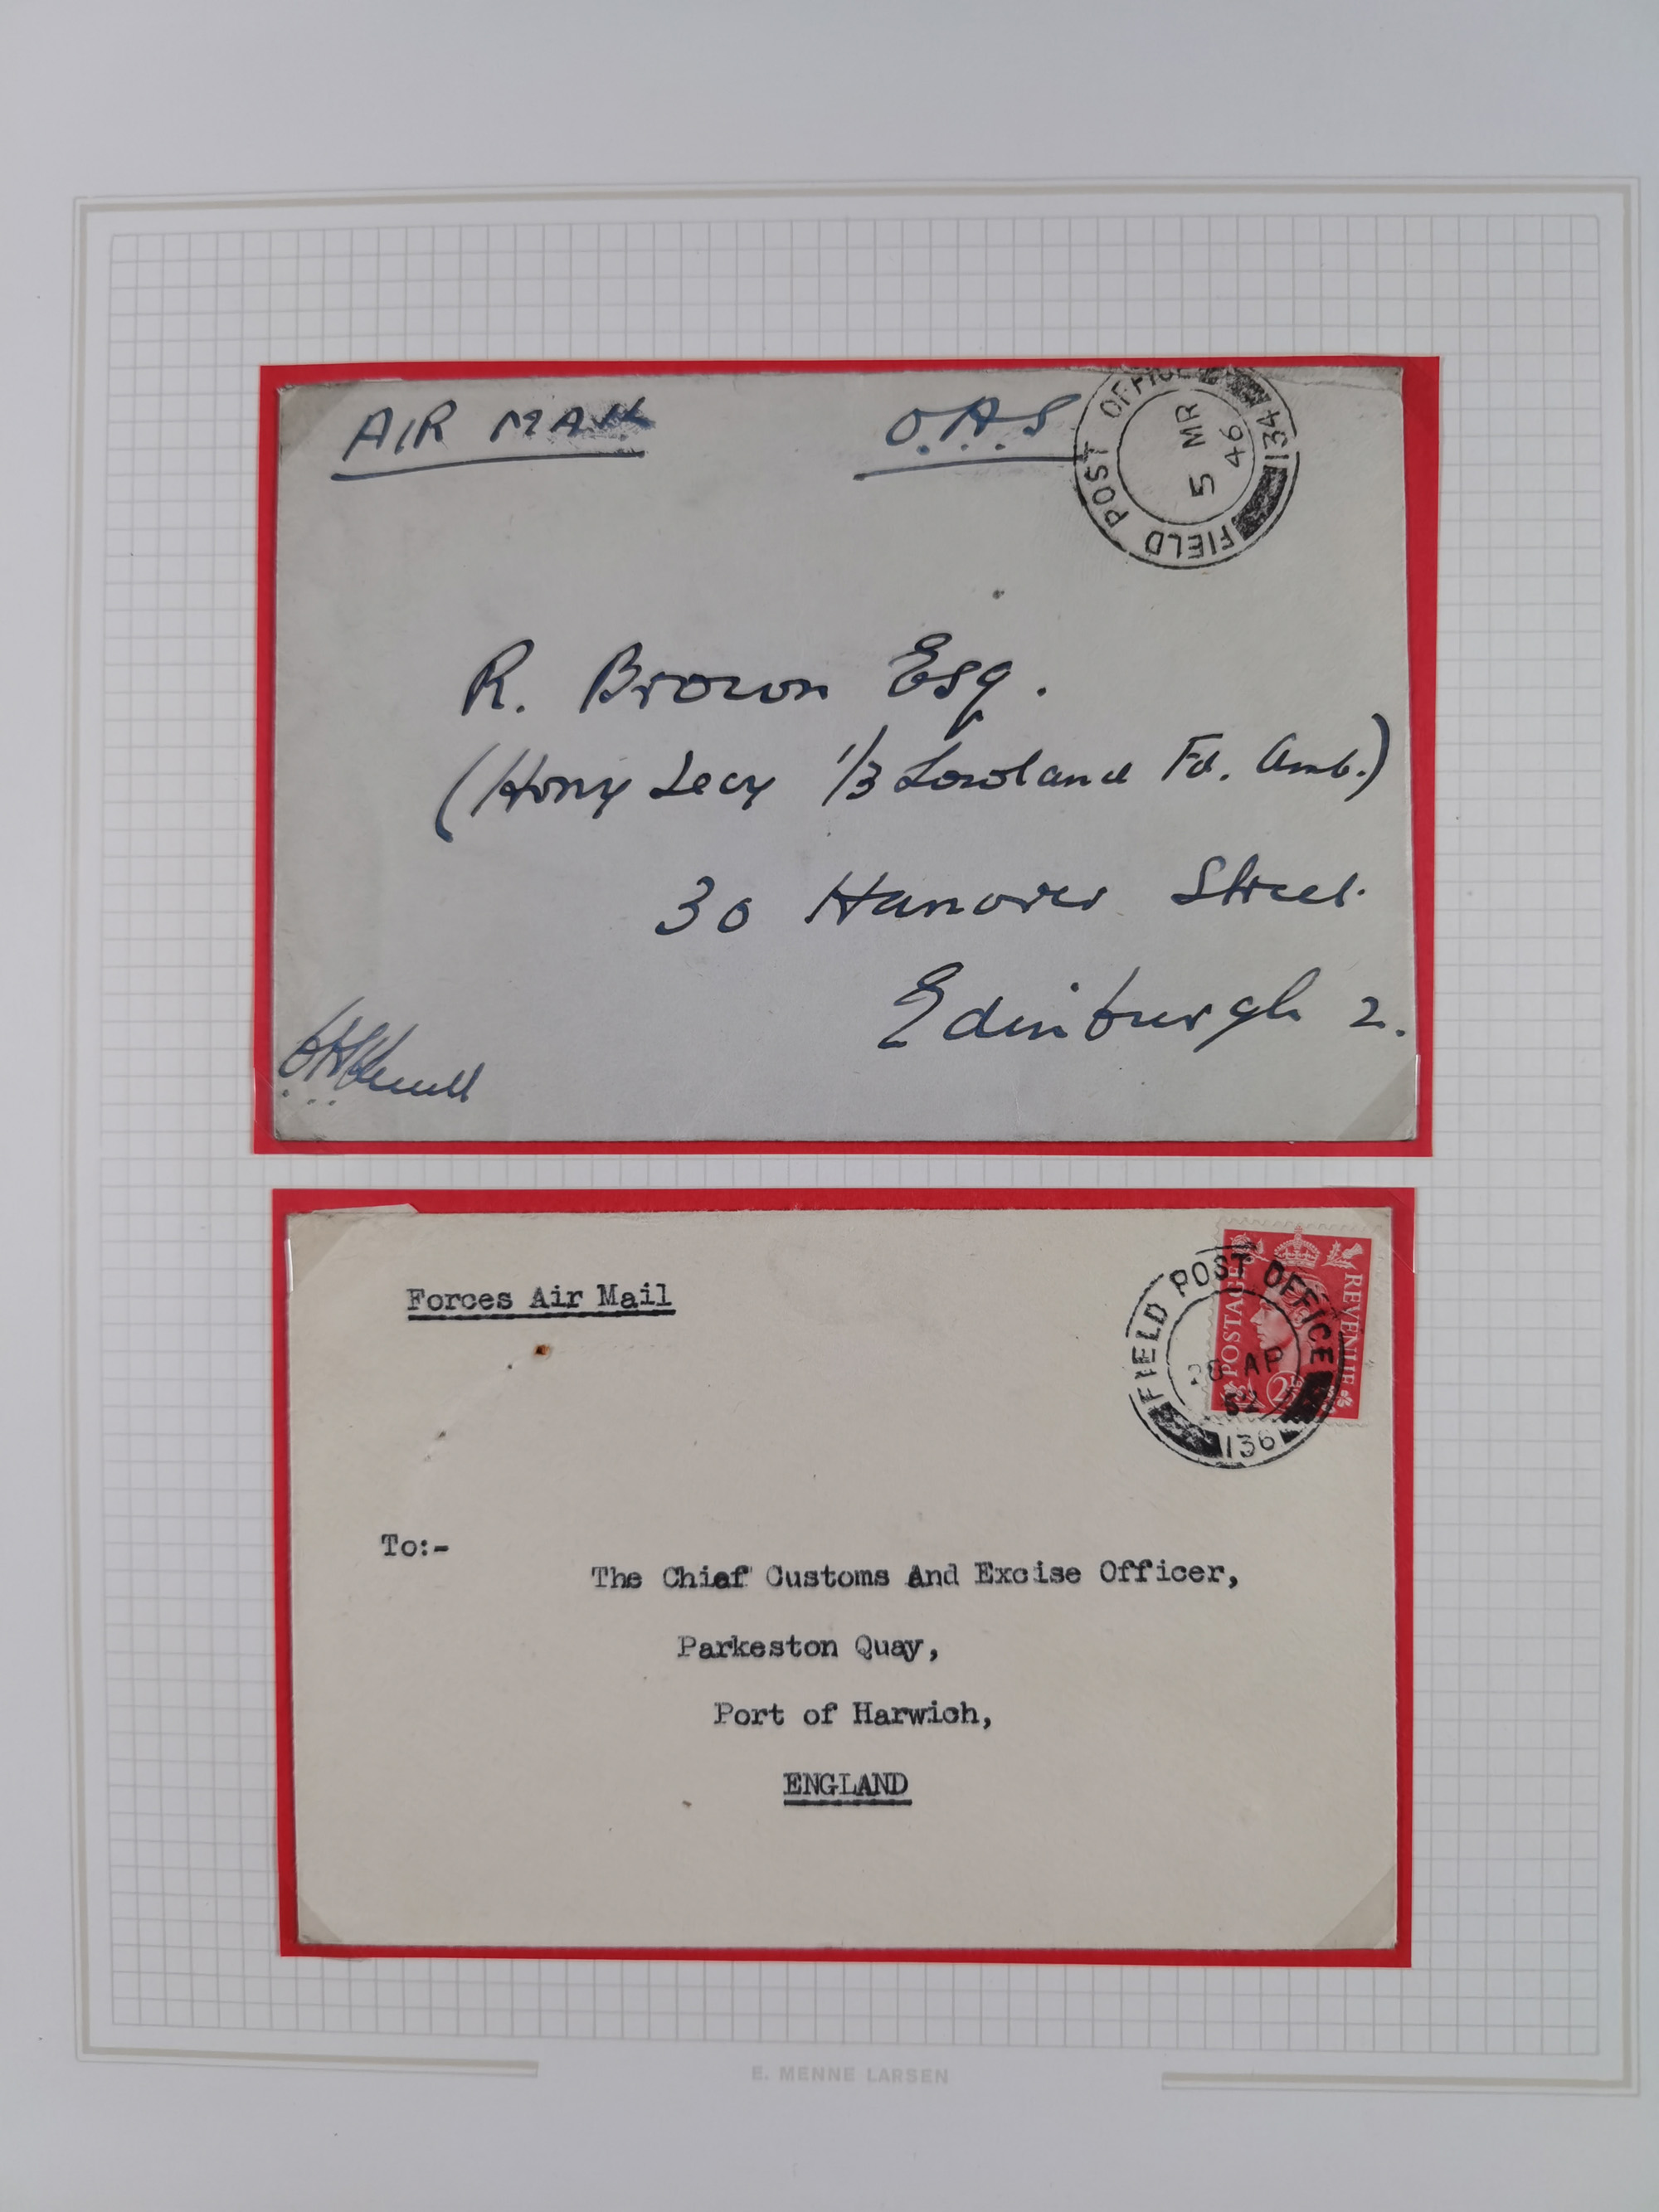 AIR MAIL
O.A.S
FIELD POST OFFICE
134
5 MR
46
R. Brown Esq.
(Hony Secy 1/3 Lowland Fd. Amb.)
30 Hanover Street.
Edinburgh 2.
Forces Air Mail
POSTAGE REVENUE
FIELD POST OFFICE
28 AP
52
136
To:-
The Chief Customs And Excise Officer,
Parkeston Quay,
Port of Harwich,
ENGLAND
E. MENNE LARSEN